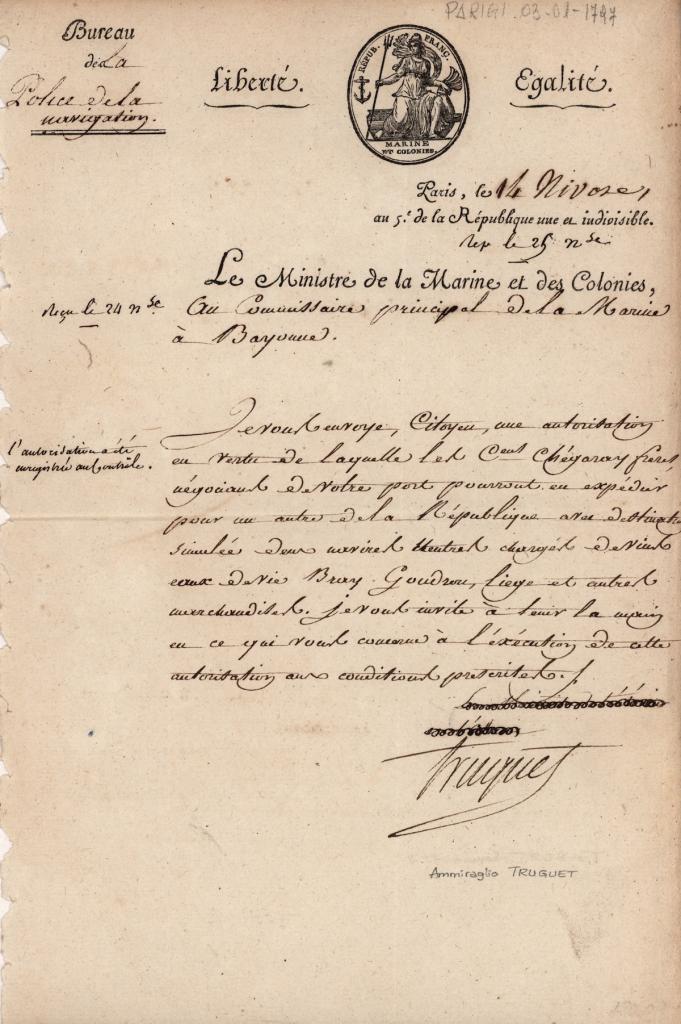 PARIGI 03-01-1797
Bureau
de La
Police de la
navigation.
Liberté.
RÉPUB. FRANÇ.
MARINE
ET COLONIES.
Egalité.
Paris, le 14 Nivose,
au 5.e de la République une et indivisible.
le 25 nse
Le Ministre de la Marine et des Colonies,
reçu le 24 nse
Au Commissaire principal de la Marine
à Bayonne.
l'autorisation a été
enregistrée au Contrôle.
Je vous envoye, Citoyen, une autorisation
en vertu de laquelle les Cens Chégaray frères,
négocians de votre port pourront en expédier
pour un autre de la République avec destination
simulée deux navires neutres chargés de vins
eaux de vie Bray Goudron, liege et autres
marchandises. je vous invite à tenir la main
en ce qui vous concerne à l'éxécution de cette
autorisation aux conditions prescrites./.
Truguet
Ammiraglio TRUGUET